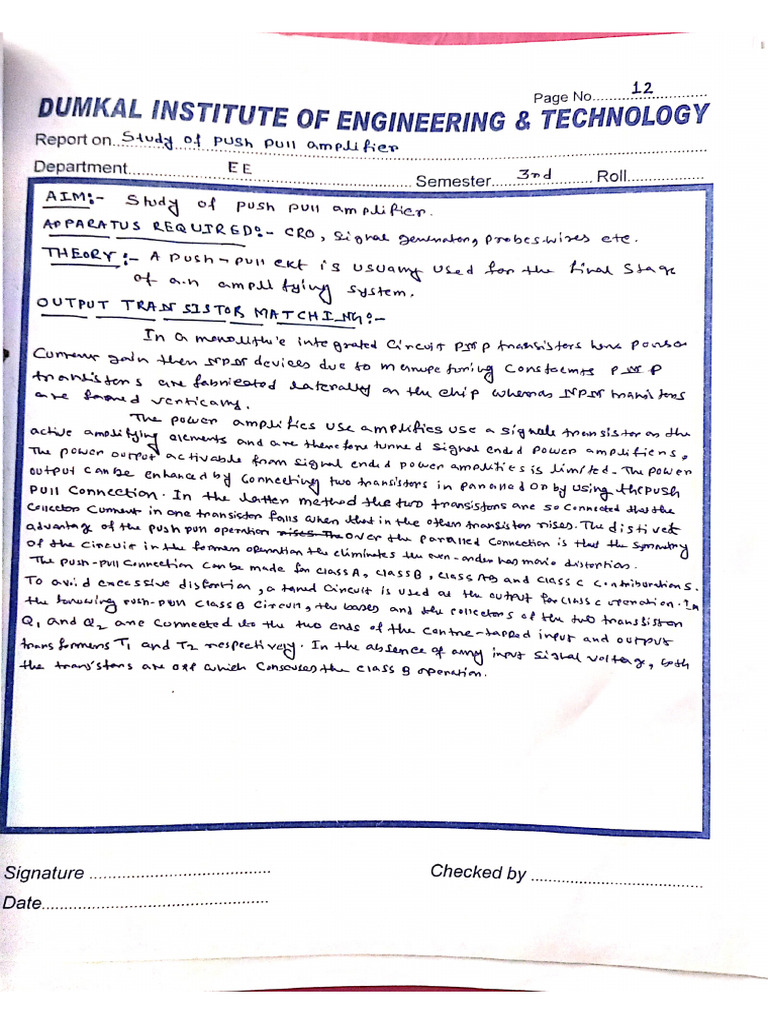 Page No. 12
DUMKAL INSTITUTE OF ENGINEERING & TECHNOLOGY
Report on Study of push pull amplifier
Department EE Semester 3rd Roll
AIM:- Study of push pull amplifier.
APPARATUS REQUIRED:- CRO, signal generator, probes wires etc.
THEORY:- A push-pull ckt is usually used for the final stage
of an amplifying system.
OUTPUT TRANSISTOR MATCHING:-
In a monolithic integrated circuit PNP transistors have
current gain then NPN devices due to PNP
transistors are fabricated laterally on the chip whereas NPN transistors
are formed vertically.
The power amplifies use amplifies use a signale transistor as the
active amplifying elements and are therefore tunned signal ended power amplifiers,
The power output activable from signal ended power amplifies is limited. The power
output can be enhanced by connecting two transistors in paralled or by using the push
pull connection. In the latter method the two transistors are so connected that the
collector current in one transistor falls when that in the other transistor rises. The distivet
advantage of the push pull operation rises The over the paralled connection is that the symmetry
of the circuit in the former operation the eliminates the even-order harmonic distortion.
The push-pull connection can be made for class A, class B, class AB and class C
To avoid excessive distortion, a tuned circuit is used as the output for class C operation. In
the following push-pull class B circuit, the bases and the collectors of the two transistor
Q1 and Q2 are connected to the two ends of the centre-tapped input and output
transformers T1 and T2 respectively. In the absence of any input signal voltage, both
the transistors are off which the class B operation.
Signature
Checked by
Date